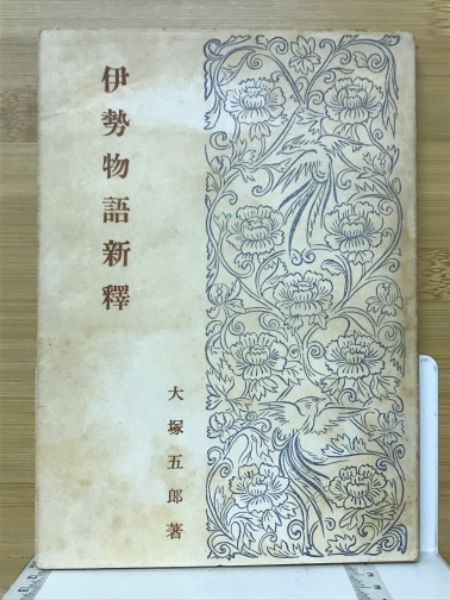 伊勢物語新釋
大塚五郎著